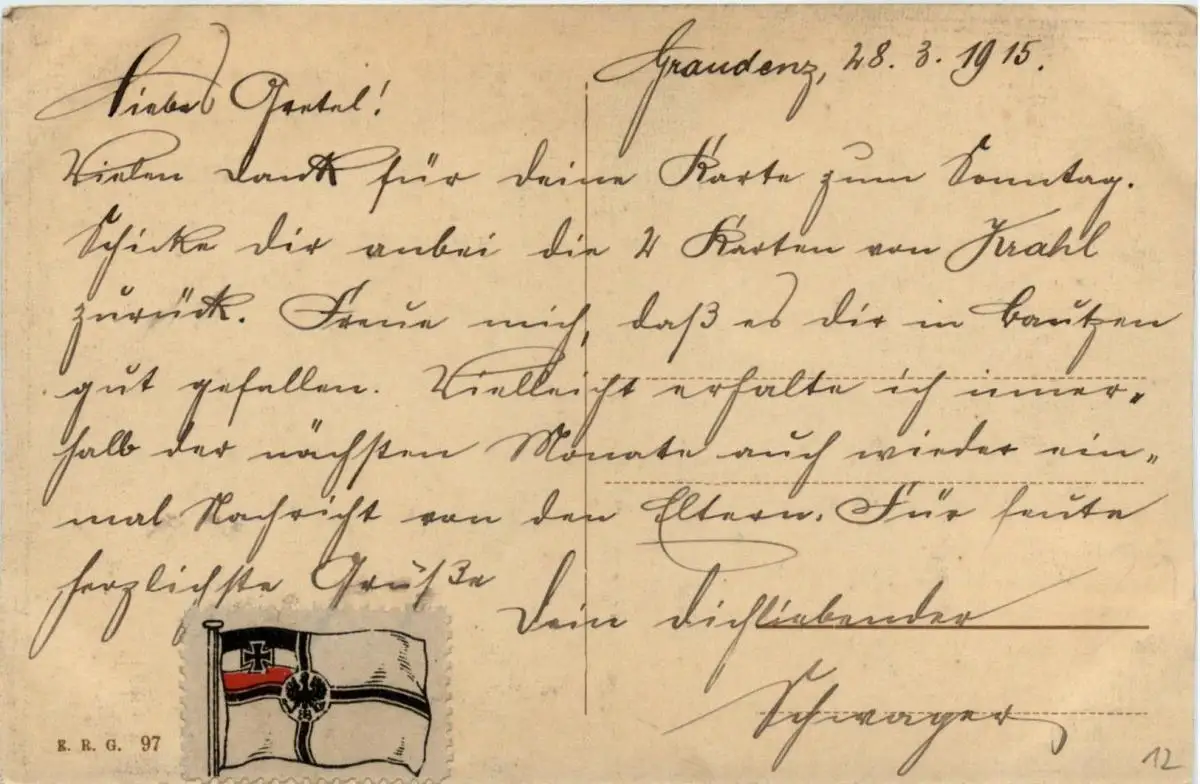 Graudenz, 28. 3. 1915.
Liebes Gretel!
Vielen Dank für deine Karte zum Sonntag.
Schicke dir anbei die 2 Karten von Krahl
zurück. Freue mich, daß es dir in Bautzen
gut gefallen. Vielleicht erhalte ich inner-
halb der nächsten Monate auch wieder ein-
mal Nachricht von den Eltern. Für heute
herzlichste Grüße
Dein dichliebender
Schwager
E. R. G. 97
12